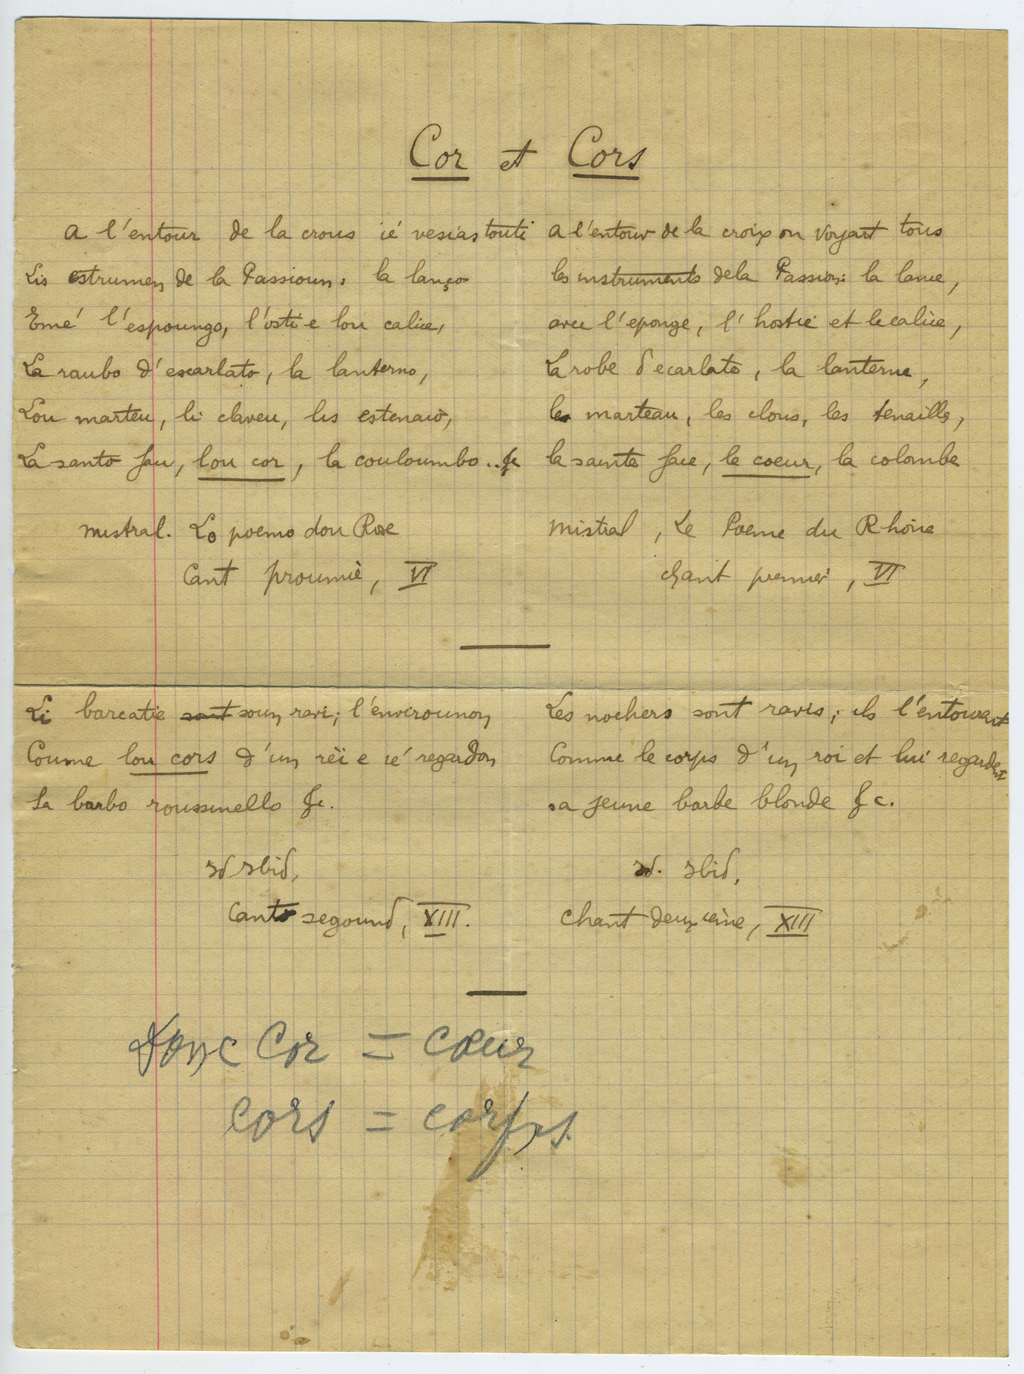 Cor et Cors
A l'entour de la crous ié vesias touti
Lis estrumen de la Passioun: la lanço
Emé l'espoungo, l'osti e lou calice,
La raubo d'escarlato, la lanterno,
Lou marteu, li claveu, lis estenaio,
La santo fàci, lou cor, la couloumbo .. &c
Mistral. Lo poemo dou Rose
Cant proumié, VI
A l'entour de la croix on voyait tous
les instruments de la Passion: la lance,
avec l'eponge, l'hostie et le calice,
La robe d'ecarlate, la lanterne,
le marteau, les clous, les tenailles,
la sainte face, le coeur, la colombe
Mistral, Le Poeme du Rhône
chant premier, VI
Li barcatié sont soun ravi; l'envirounon
Coume lou cors d'un rèi e ié regardon
La barbo roussinello &c.
Id Ibid,
Cant segound, XIII.
Les nochers sont ravis; ils l'entourent
Comme le corps d'un roi et lui regardent
sa jeune barbe blonde &c.
Id. Ibid,
Chant deuxième, XIII
Donc Cor = cœur
cors = corps.